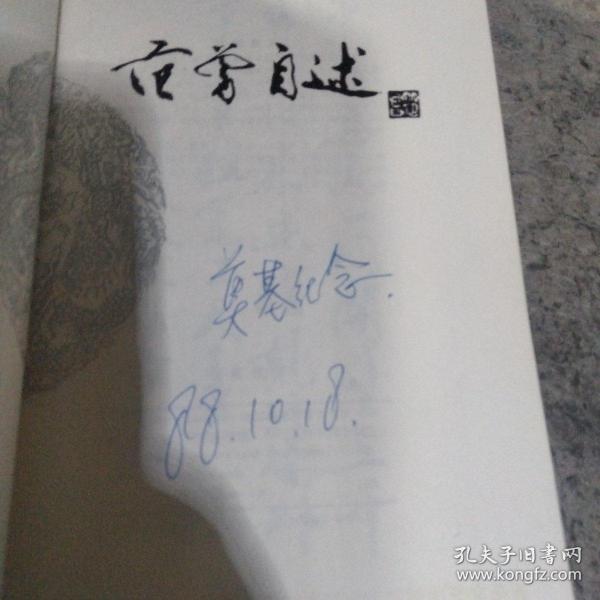 范曾自述
奠基纪念.
88.10.18.
孔夫子旧书网
www.kongfz.com